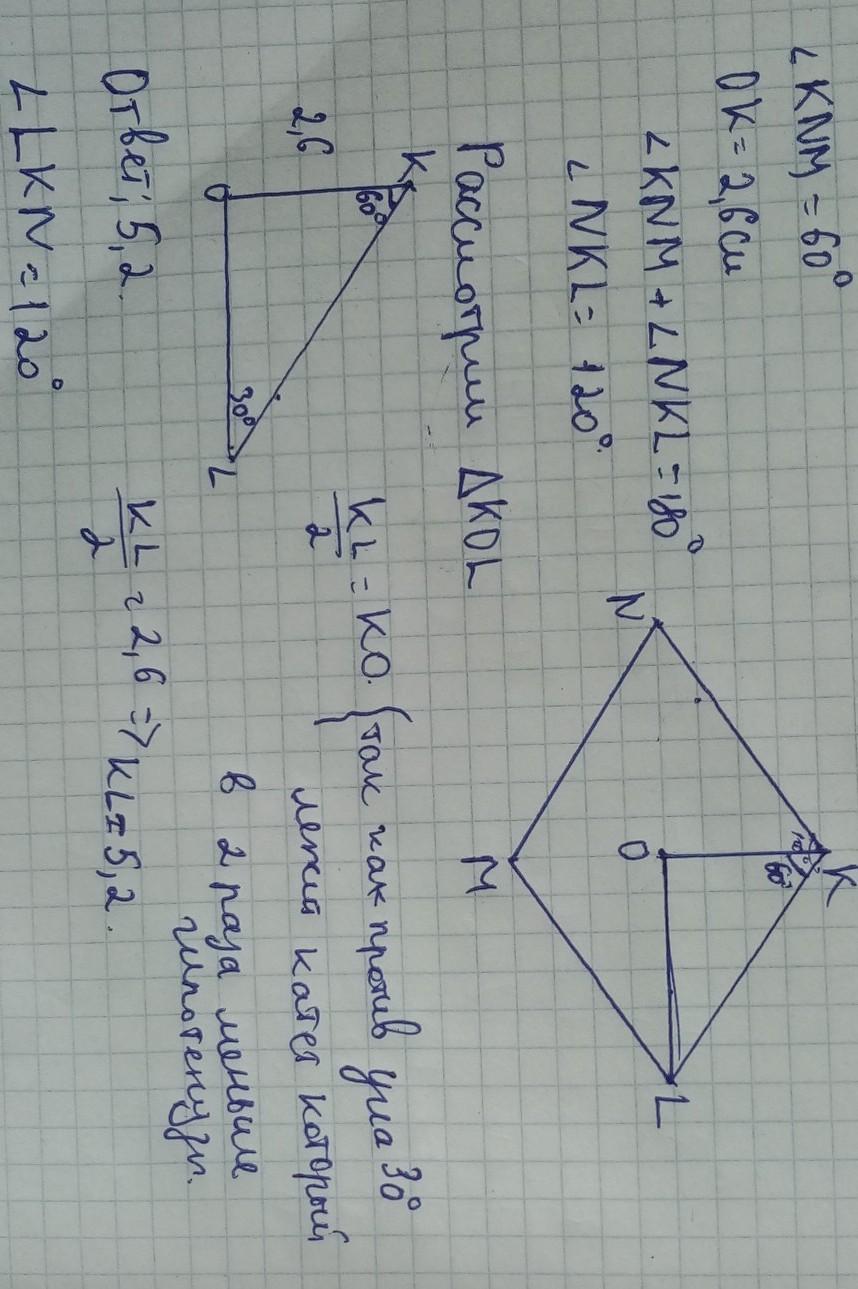 ∠KNM = 60°
OK = 2,6 см
∠KNM + ∠NKL = 180°
∠NKL = 120°.
N
K
120°
60°
O
M
L
Рассмотрим ΔKOL
K
60°
2,6
O
30°
L
KL/2 = KO. {так как против угла 30°
лежит катет который
в 2 раза меньше
гипотенузы.
KL/2 = 2,6 => KL = 5,2.
Ответ; 5,2.
∠LKN = 120°